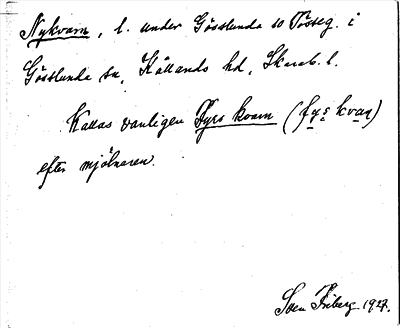 Nykvarn, l. under Gösslunda so Pösseg. i
Gösslunda sn, Kållands hd, Skarab. l.
Kallas vanligen Fyrs kvarn (fys kvaṇ)
efter mjölnaren.
Sven Friberg 1927.